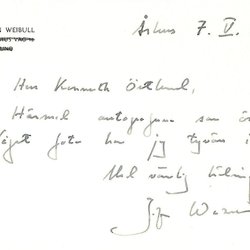 N WEIBULL
Århus 7. V.
Herr Kenneth Östlund,
Härmed autografen som ö
Något foto har jag tyvärr i
Med vänlig hälsning